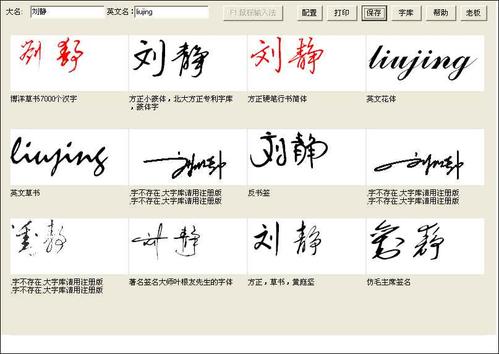 大名: 刘静 英文名: liujing F1 鼠标输入法 配置 打印 保存 字库 帮助 老板
刘静 刘静 刘静 liujing
博洋草书7000个汉字 方正小篆体，北大方正专利字库，篆体字 方正硬笔行书简体 英文花体
liujing 刘静
英文草书 字不存在,大字库请用注册版 反书签 字不存在,大字库请用注册版
字不存在,大字库请用注册版 字不存在,大字库请用注册版
静 叶静 刘静 静
字不存在,大字库请用注册版 著名签名大师叶根友先生的字体 方正，草书，黄庭坚 仿毛主席签名
字不存在,大字库请用注册版